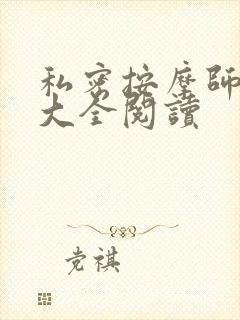 私密按摩師
大全閱讀
党祺